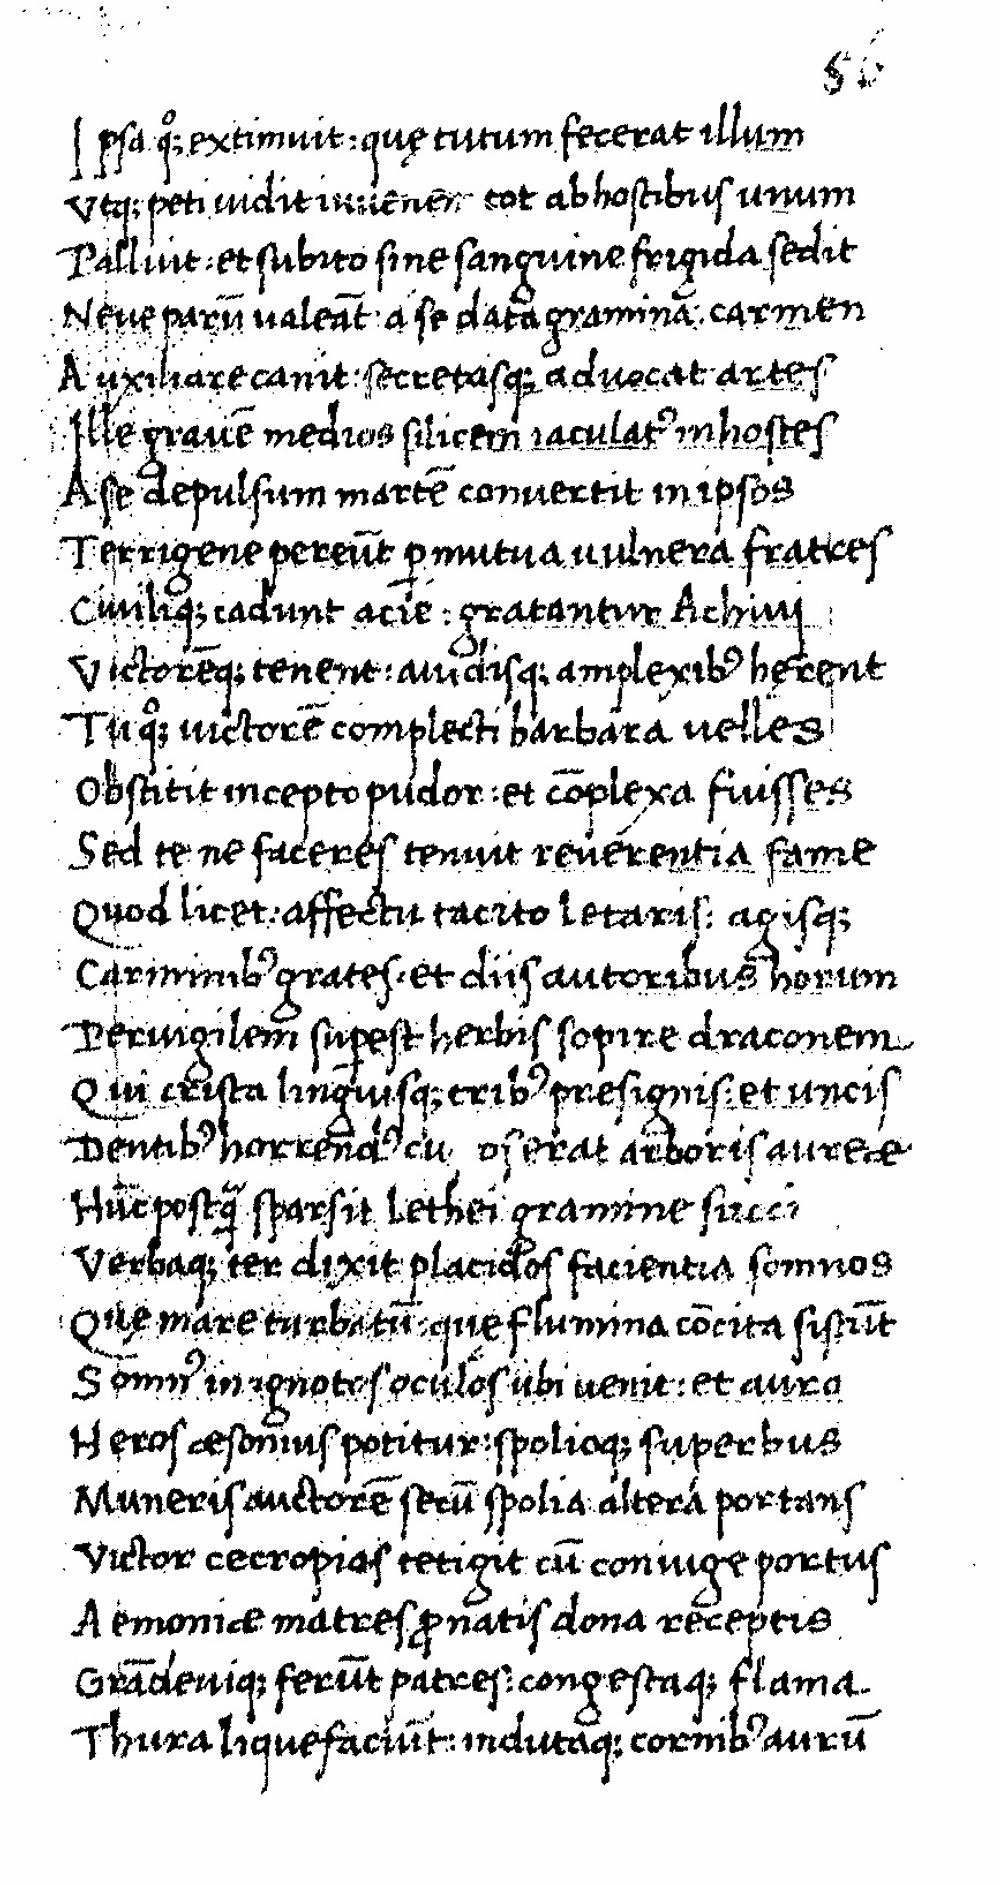 56
Ipsa qͦ; extimuit: quę tutum fecerat illum
Vtq; peti uidit iuuenē tot ab hostibus unum
Palluit: et subito sine sanguine frigida sedit
Neue parū ualeāt: a se data gramina: carmen
Auxiliare canit: secretasq; aduocat artes
Ille grauē medios silicem iaculatꝰ in hostes
A se depulsum martē conuertit in ipsos
Terrigene pereūt ꝑ mutua uulnera fratres
Ciuiliq; cadunt acie: gratantur Achiui
Victorēq; tenent: auidisq; amplexibꝰ herent
Tu qͦ; uictorē complecti barbara uelles
Obstitit incepto pudor: et cōplexa fuisses
Sed te ne faceres tenuit reuerentia fame
Quod licet: affectu tacito letaris: agisq;
Carminibꝰ grates: et diis autoribus horum
Peruigilem suꝑest herbis sopire draconem
Qui crista linguisq; tribꝰ presignis: et uncis
Dentibꝰ horrendꝰ cu os erat arboris aureae
Hūc postq̄ sparsit Lethei gramine succi
Verbaq; ter dixit placidos facientia somnos
Quę mare turbatū: quę flumina cōcita sistūt
Somnꝰ in ignotos oculos ubi uenit: et auro
Heros aesonius potitur: spolioq; superbus
Muneris auctorē secū spolia altera portans
Victor cecropias tetigit cū coniuge portus
Aemoniae matres ꝓ natis dona receptis
Grādeuiq; ferūt patres: congestaq; flama
Thura liquefaciūt: indutaq; cornibꝰ aurū